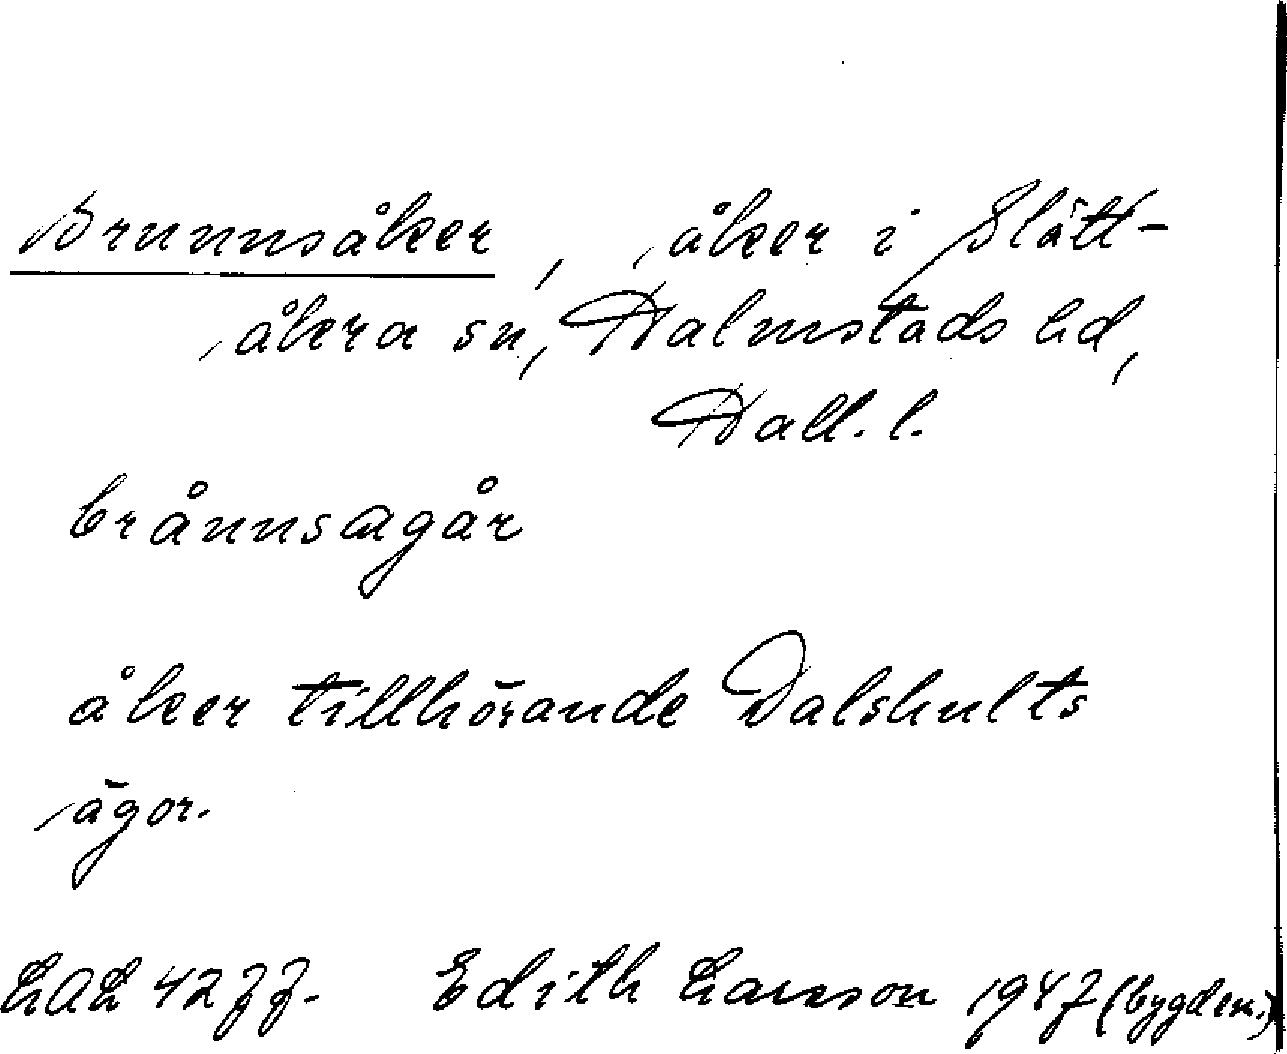 Brunnsåker, åker i Slätt-
åkra sn, Halmstads hd,
Hall. l.
brånnsagår
åker tillhörande Dalshults
ägor.
LAL 4277. Edith Larsson 1947 (bygdem.)